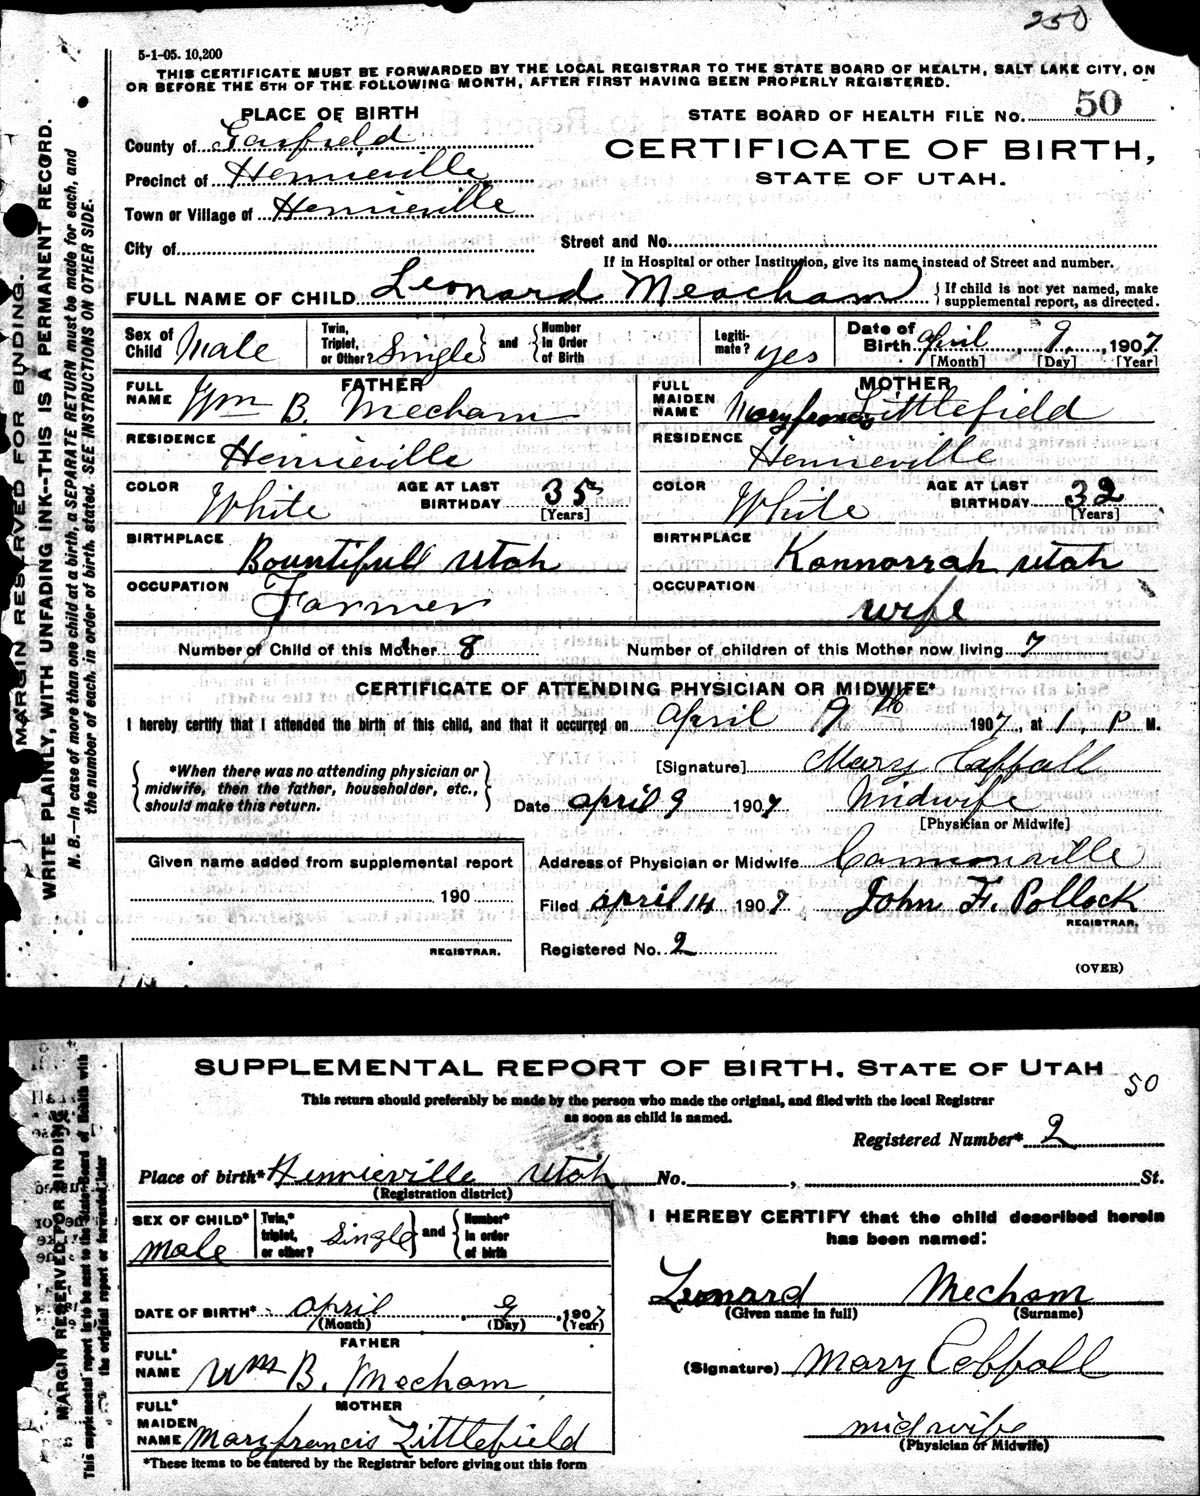 250
5-1-05. 10,200
THIS CERTIFICATE MUST BE FORWARDED BY THE LOCAL REGISTRAR TO THE STATE BOARD OF HEALTH, SALT LAKE CITY, ON
OR BEFORE THE 5TH OF THE FOLLOWING MONTH, AFTER FIRST HAVING BEEN PROPERLY REGISTERED.
PLACE OF BIRTH
STATE BOARD OF HEALTH FILE NO. 50
County of Garfield
CERTIFICATE OF BIRTH,
Precinct of Henrieville
STATE OF UTAH.
Town or Village of Henrieville
City of
Street and No.
If in Hospital or other Institution, give its name instead of Street and number.
FULL NAME OF CHILD Leonard Meacham { If child is not yet named, make supplemental report, as directed.
Sex of Child Male Twin, Triplet, or Other? Single } and { Number in Order of Birth Legiti-mate? yes Date of Birth April 9, 1907
[Month] [Day] [Year]
FATHER MOTHER
FULL NAME Wm B. Mecham FULL MAIDEN NAME Maryfrancis Littlefield
RESIDENCE Henrieville RESIDENCE Henrieville
COLOR White AGE AT LAST BIRTHDAY 35 [Years] COLOR White AGE AT LAST BIRTHDAY 32 [Years]
BIRTHPLACE Bountifull Utah BIRTHPLACE Kannarrah Utah
OCCUPATION Farmer OCCUPATION wife
Number of Child of this Mother 8 Number of children of this Mother now living 7
CERTIFICATE OF ATTENDING PHYSICIAN OR MIDWIFE*
I hereby certify that I attended the birth of this child, and that it occurred on April 9th 1907, at 1 P M.
{ *When there was no attending physician or midwife, then the father, householder, etc., should make this return. }
[Signature] Mary Caffall
Date April 9 1907 Midwife
[Physician or Midwife]
Given name added from supplemental report
Address of Physician or Midwife Cannonville
190
Filed April 14 1907 John F. Pollock
REGISTRAR.
REGISTRAR.
Registered No. 2
(OVER)
MARGIN RESERVED FOR BINDING.
WRITE PLAINLY, WITH UNFADING INK--THIS IS A PERMANENT RECORD.
N. B.—In case of more than one child at a birth, a SEPARATE RETURN must be made for each, and
the number of each, in order of birth, stated. SEE INSTRUCTIONS ON OTHER SIDE.
SUPPLEMENTAL REPORT OF BIRTH. STATE OF UTAH
50
This return should preferably be made by the person who made the original, and filed with the local Registrar
as soon as child is named.
Registered Number* 2
Place of birth* Henrieville Utah No. , St.
(Registration district)
SEX OF CHILD* Male Twin,* triplet, or other? Single } and { Number* in order of birth
I HEREBY CERTIFY that the child described herein
has been named:
DATE OF BIRTH* April 9, 1907
(Month) (Day) (Year)
Leonard Mecham
(Given name in full) (Surname)
FATHER
FULL* NAME Wm B. Mecham
(Signature) Mary Coffall
MOTHER
FULL* MAIDEN NAME Maryfrancis Littlefield
midwife
(Physician or Midwife)
*These items to be entered by the Registrar before giving out this form
MARGIN RESERVED FOR BINDING
This supplemental report is to be sent to the State Board of Health with
the original report or forwarded later